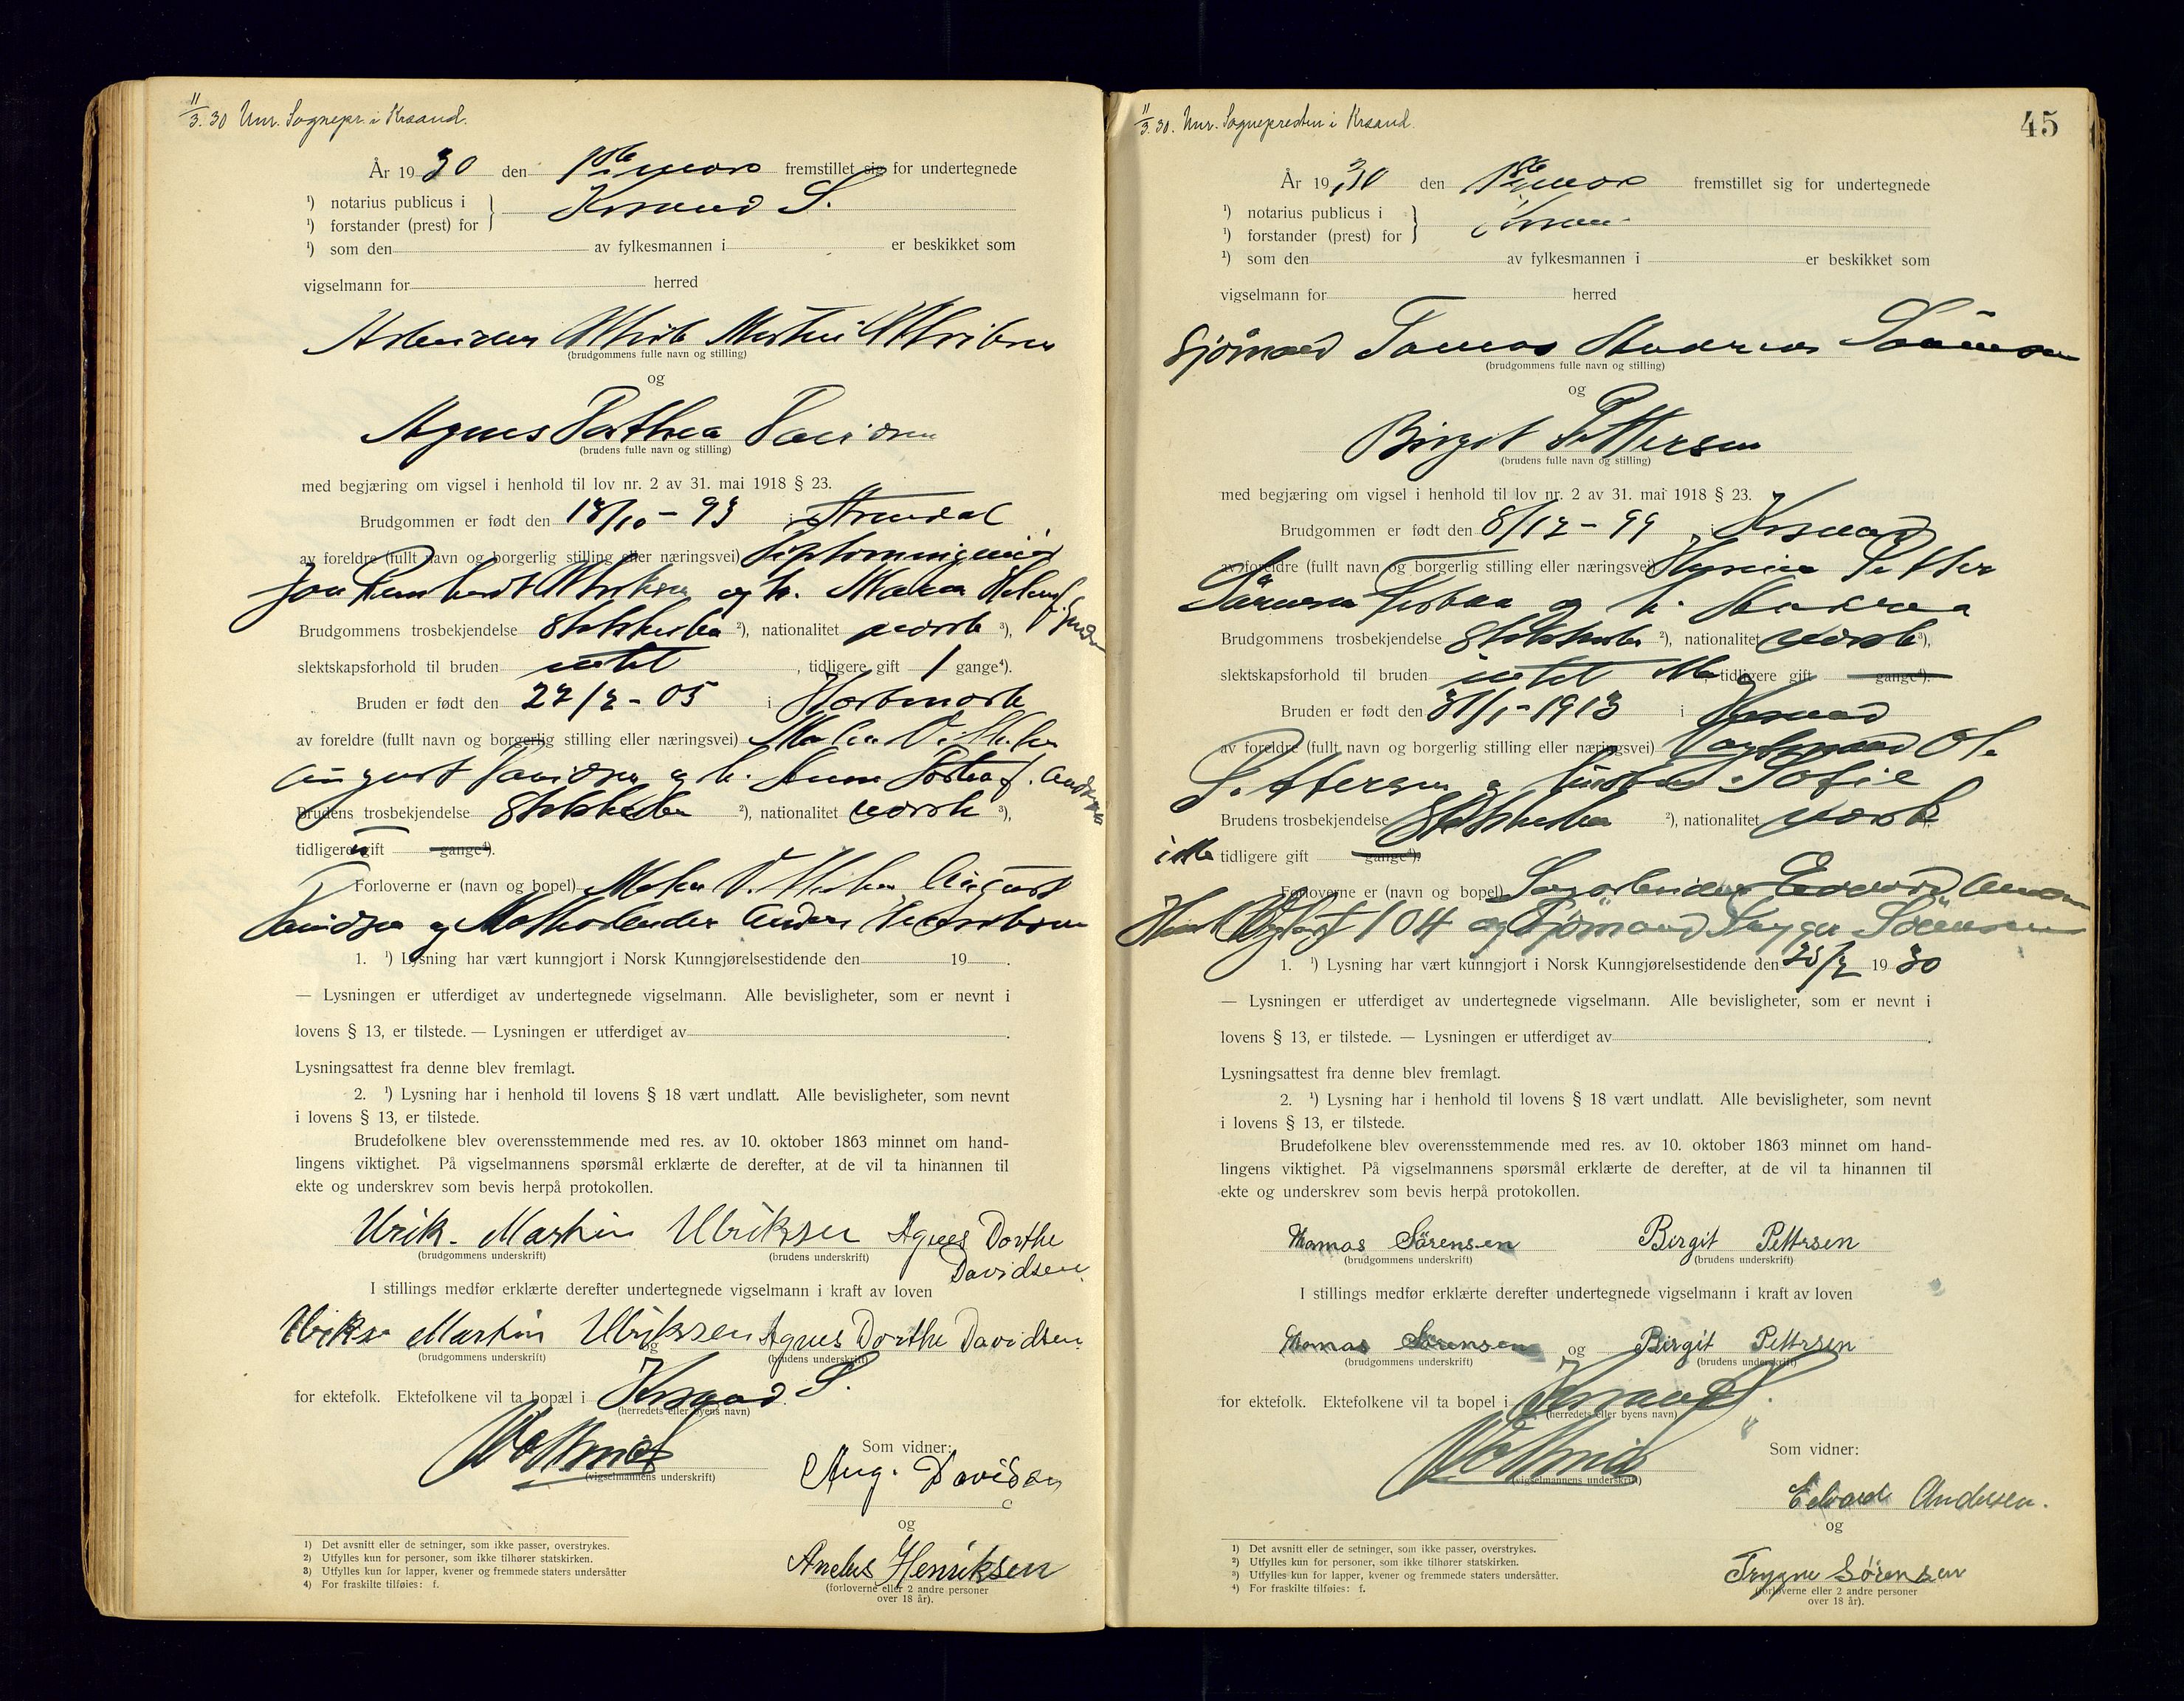 11/3.30 Unr. Sognepr. i Krsand.
År 1930 den 1ste mars fremstillet sig for undertegnede
¹) notarius publicus i
Krsand S.
¹) forstander (prest) for
¹) som den av fylkesmannen i er beskikket som
vigselmann for herred
Arbeider Ulrik Martin Ulriksen
(brudgommens fulle navn og stilling)
og
Agnes Dorthea Davidsen
(brudens fulle navn og stilling)
med begjæring om vigsel i henhold til lov nr. 2 av 31. mai 1918 § 23.
Brudgommen er født den 18/10 - 93 i Arendal
av foreldre (fullt navn og borgerlig stilling eller næringsvei)
Ulriksen og h. Maren
Brudgommens trosbekjendelse ²), nationalitet norsk ³),
slektskapsforhold til bruden intet, tidligere gift 1 gange⁴).
Bruden er født den 22/2 - 05 i
av foreldre (fullt navn og borgerlig stilling eller næringsvei)
August Davidsen og h. Anne
Brudens trosbekjendelse ²), nationalitet norsk ³),
tidligere gift gange⁴).
Forloverne er (navn og bopel) August
Davidsen og
1. ¹) Lysning har vært kunngjort i Norsk Kunngjørelsestidende den 19 .
— Lysningen er utferdiget av undertegnede vigselmann. Alle bevisligheter, som er nevnt i
lovens § 13, er tilstede. — Lysningen er utferdiget av .
Lysningsattest fra denne blev fremlagt.
2. ¹) Lysning har i henhold til lovens § 18 vært undlatt. Alle bevisligheter, som nevnt
i lovens § 13, er tilstede.
Brudefolkene blev overensstemmende med res. av 10. oktober 1863 minnet om hand-
lingens viktighet. På vigselmannens spørsmål erklærte de derefter, at de vil ta hinannen til
ekte og underskrev som bevis herpå protokollen.
Ulrik. Martin Ulriksen Agnes Dorthe
(brudgommens underskrift) (brudens underskrift)
Davidsen
I stillings medfør erklærte derefter undertegnede vigselmann i kraft av loven
Martin Ulriksen Agnes Dorthe Davidsen.
(brudgommens underskrift) og (brudens underskrift)
for ektefolk. Ektefolkene vil ta bopæl i Krsand S.
(herredets eller byens navn)
(vigselmannens underskrift)
Som vidner:
Aug. Davidsen
og
Anders Henriksen
(forloverne eller 2 andre personer
over 18 år).
1) Det avsnitt eller de setninger, som ikke passer, overstrykes.
2) Utfylles kun for personer, som ikke tilhører statskirken.
3) Utfylles kun for lapper, kvener og fremmede staters undersåtter
4) For fraskilte tilføies: f.
11/3.30. Unr. Sognepresten i Krsand.
45
År 1930 den 1ste mars fremstillet sig for undertegnede
¹) notarius publicus i
Krsand
¹) forstander (prest) for
¹) som den av fylkesmannen i er beskikket som
vigselmann for herred
Sjømand Tomas Andreas Sørensen
(brudgommens fulle navn og stilling)
og
Birgit Pettersen
(brudens fulle navn og stilling)
med begjæring om vigsel i henhold til lov nr. 2 av 31. mai 1918 § 23.
Brudgommen er født den 8/12 - 99 i Krsand
av foreldre (fullt navn og borgerlig stilling eller næringsvei) Petter
Sørensen og h. Andrea
Brudgommens trosbekjendelse ²), nationalitet norsk ³),
slektskapsforhold til bruden intet ikke tidligere gift gange⁴).
Bruden er født den 31/1 - 1913 i Krsand
av foreldre (fullt navn og borgerlig stilling eller næringsvei) Ol.
Pettersen og hustru Sofie
Brudens trosbekjendelse ²), nationalitet norsk
ikke tidligere gift gange⁴).
Forloverne er (navn og bopel) Edvard
104 og Sjømand Trygve Sørensen
1. ¹) Lysning har vært kunngjort i Norsk Kunngjørelsestidende den 25/2 1930
— Lysningen er utferdiget av undertegnede vigselmann. Alle bevisligheter, som er nevnt i
lovens § 13, er tilstede. — Lysningen er utferdiget av .
Lysningsattest fra denne blev fremlagt.
2. ¹) Lysning har i henhold til lovens § 18 vært undlatt. Alle bevisligheter, som nevnt
i lovens § 13, er tilstede.
Brudefolkene blev overensstemmende med res. av 10. oktober 1863 minnet om hand-
lingens viktighet. På vigselmannens spørsmål erklærte de derefter, at de vil ta hinannen til
ekte og underskrev som bevis herpå protokollen.
Thomas Sörensen Birgit Pettersen
(brudgommens underskrift) (brudens underskrift)
I stillings medfør erklærte derefter undertegnede vigselmann i kraft av loven
Thomas Sörensen og Birgit Pettersen
(brudgommens underskrift) (brudens underskrift)
for ektefolk. Ektefolkene vil ta bopel i Krsand S.
(herredets eller byens navn)
(vigselmannens underskrift)
Som vidner:
Edvard Andersen.
og
Trygve Sörensen
(forloverne eller 2 andre personer
over 18 år).
1) Det avsnitt eller de setninger, som ikke passer, overstrykes.
2) Utfylles kun for personer, som ikke tilhører statskirken.
3) Utfylles kun for lapper, kvener og fremmede staters undersåtter.
4) For fraskilte tilføies: f.